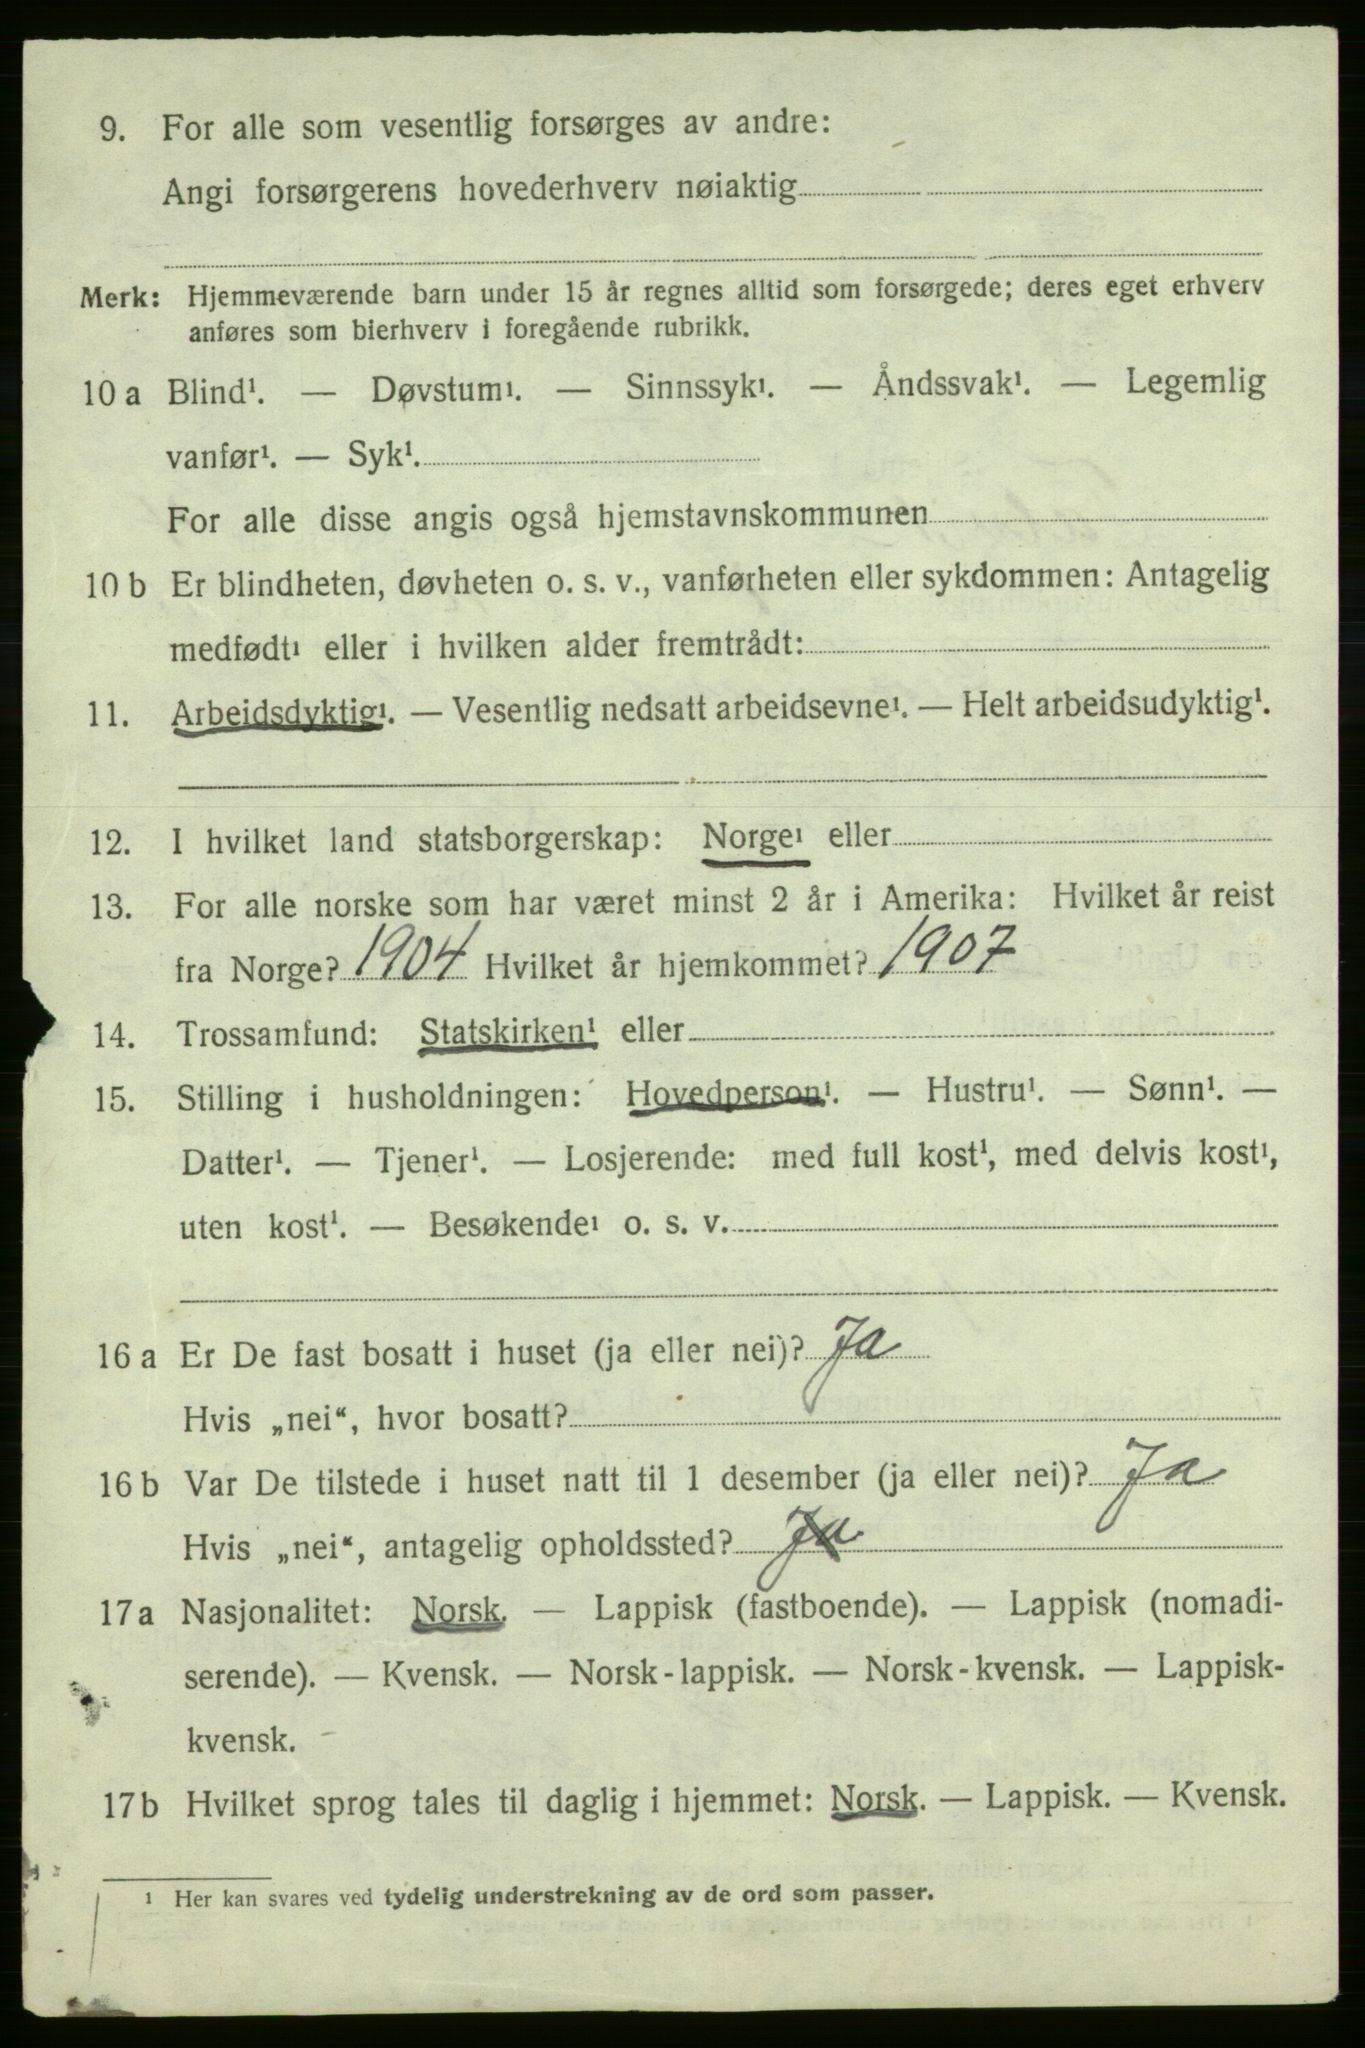 9. For alle som vesentlig forsørges av andre:
Angi forsørgerens hovederhverv nøiaktig
Merk: Hjemmeværende barn under 15 år regnes alltid som forsørgede; deres eget erhverv
anføres som bierhverv i foregående rubrikk.
10 a Blind¹. — Døvstum¹. — Sinnssyk¹. — Åndssvak¹. — Legemlig
vanfør¹. — Syk¹.
For alle disse angis også hjemstavnskommunen
10 b Er blindheten, døvheten o. s. v., vanførheten eller sykdommen: Antagelig
medfødt¹ eller i hvilken alder fremtrådt:
11. Arbeidsdyktig¹. — Vesentlig nedsatt arbeidsevne¹. — Helt arbeidsudyktig¹.
12. I hvilket land statsborgerskap: Norge¹ eller
13. For alle norske som har været minst 2 år i Amerika: Hvilket år reist
fra Norge? 1904 Hvilket år hjemkommet? 1907
14. Trossamfund: Statskirken¹ eller
15. Stilling i husholdningen: Hovedperson¹. — Hustru¹. — Sønn¹. —
Datter¹. — Tjener¹. — Losjerende: med full kost¹, med delvis kost¹,
uten kost¹. — Besøkende¹ o. s. v.
16 a Er De fast bosatt i huset (ja eller nei)? Ja
Hvis „nei“, hvor bosatt?
16 b Var De tilstede i huset natt til 1 desember (ja eller nei)? Ja
Hvis „nei“, antagelig opholdssted? Ja
17 a Nasjonalitet: Norsk. — Lappisk (fastboende). — Lappisk (nomadi-
serende). — Kvensk. — Norsk-lappisk. — Norsk-kvensk. — Lappisk-
kvensk.
17 b Hvilket sprog tales til daglig i hjemmet: Norsk. — Lappisk. — Kvensk.
¹ Her kan svares ved tydelig understrekning av de ord som passer.